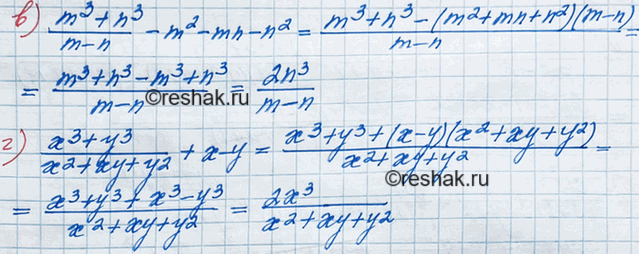 в) (m³+n³)/(m-n) - m² - mn - n² = (m³+n³-(m²+mn+n²)(m-n))/(m-n) =
= (m³+n³-m³+n³)/(m-n) = 2n³/(m-n)
©reshak.ru
г) (x³+y³)/(x²+xy+y²) + x-y = (x³+y³+(x-y)(x²+xy+y²))/(x²+xy+y²) =
©reshak.ru
= (x³+y³+x³-y³)/(x²+xy+y²) = 2x³/(x²+xy+y²)